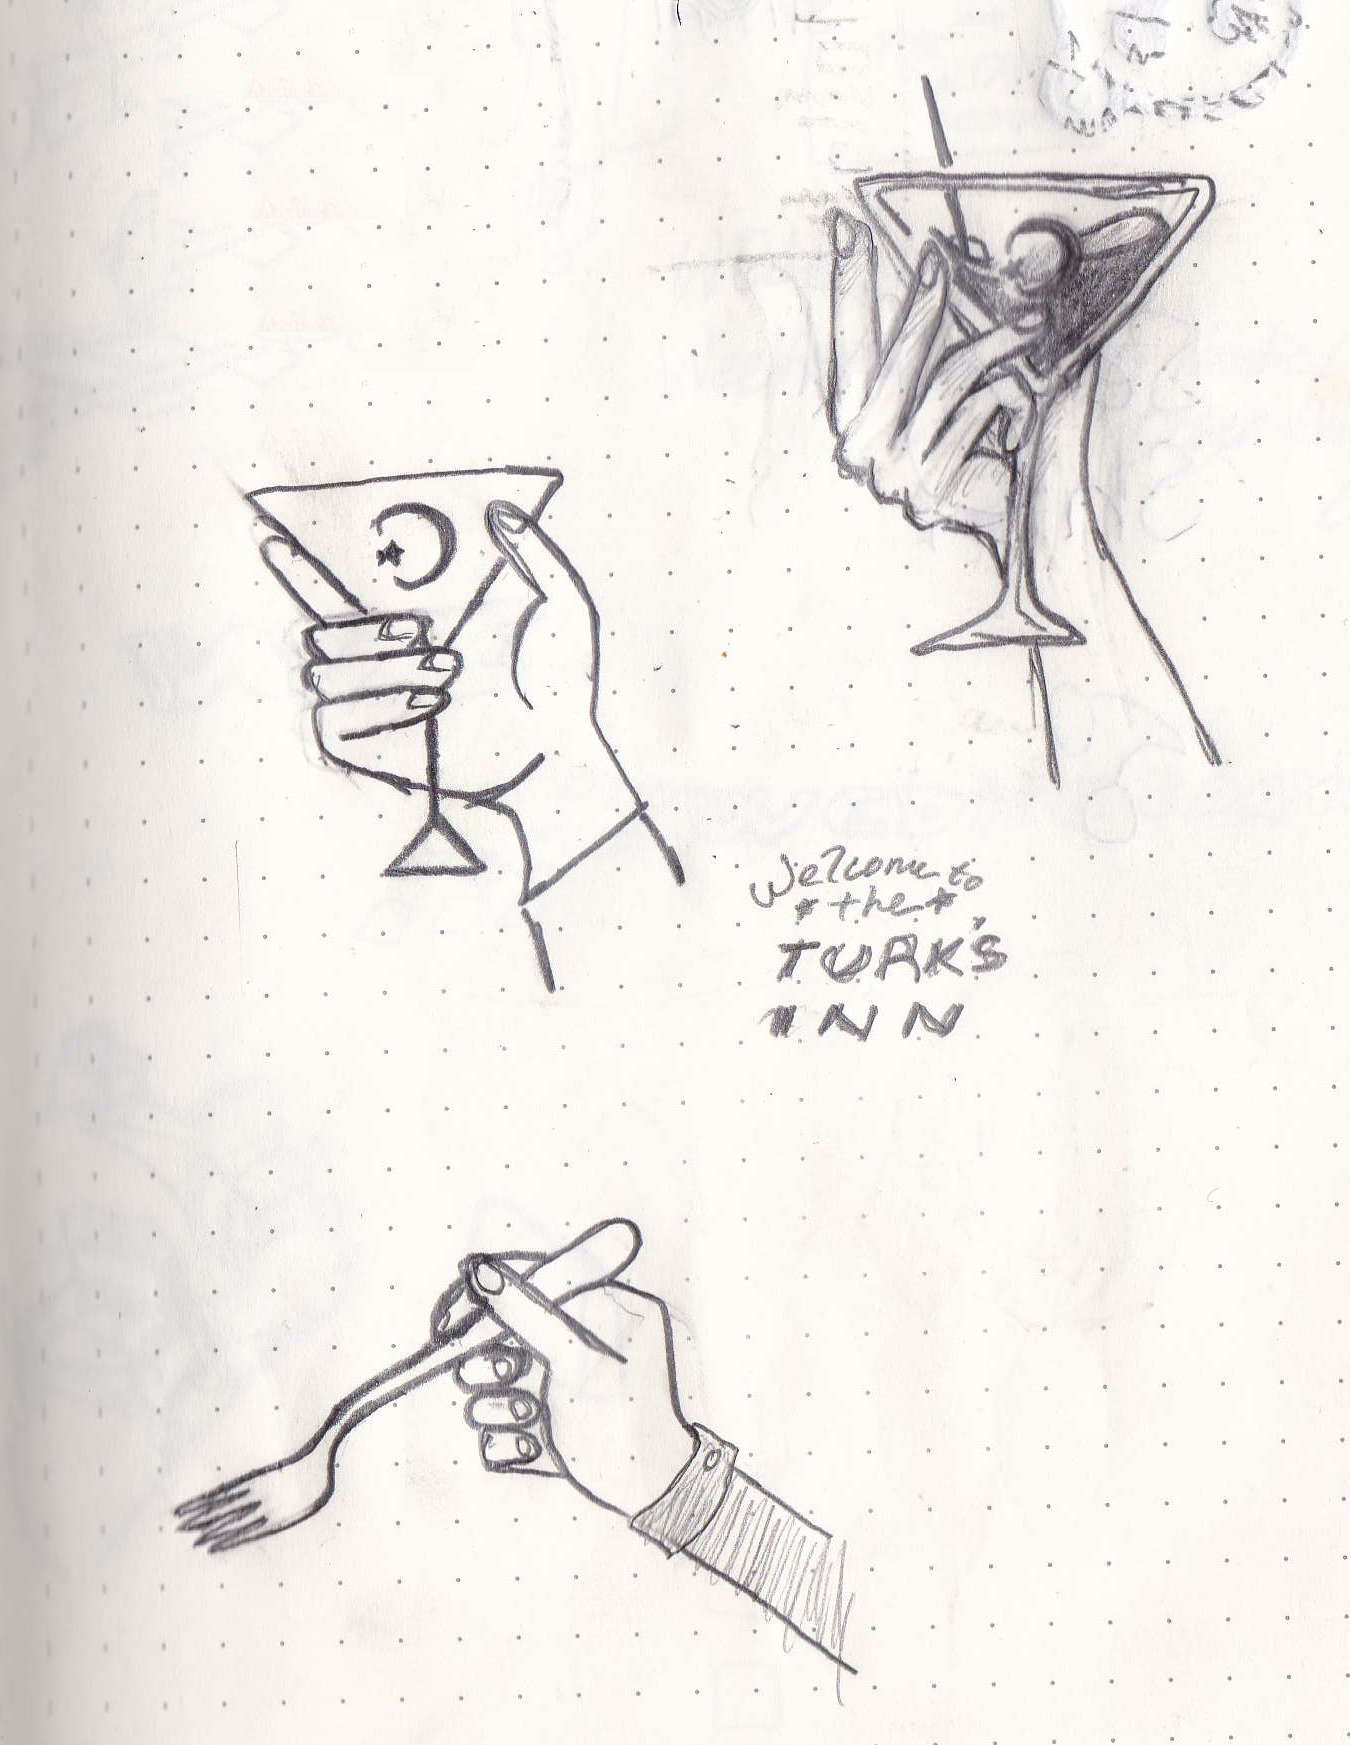 Welcome to
*the*
TURK'S
INN